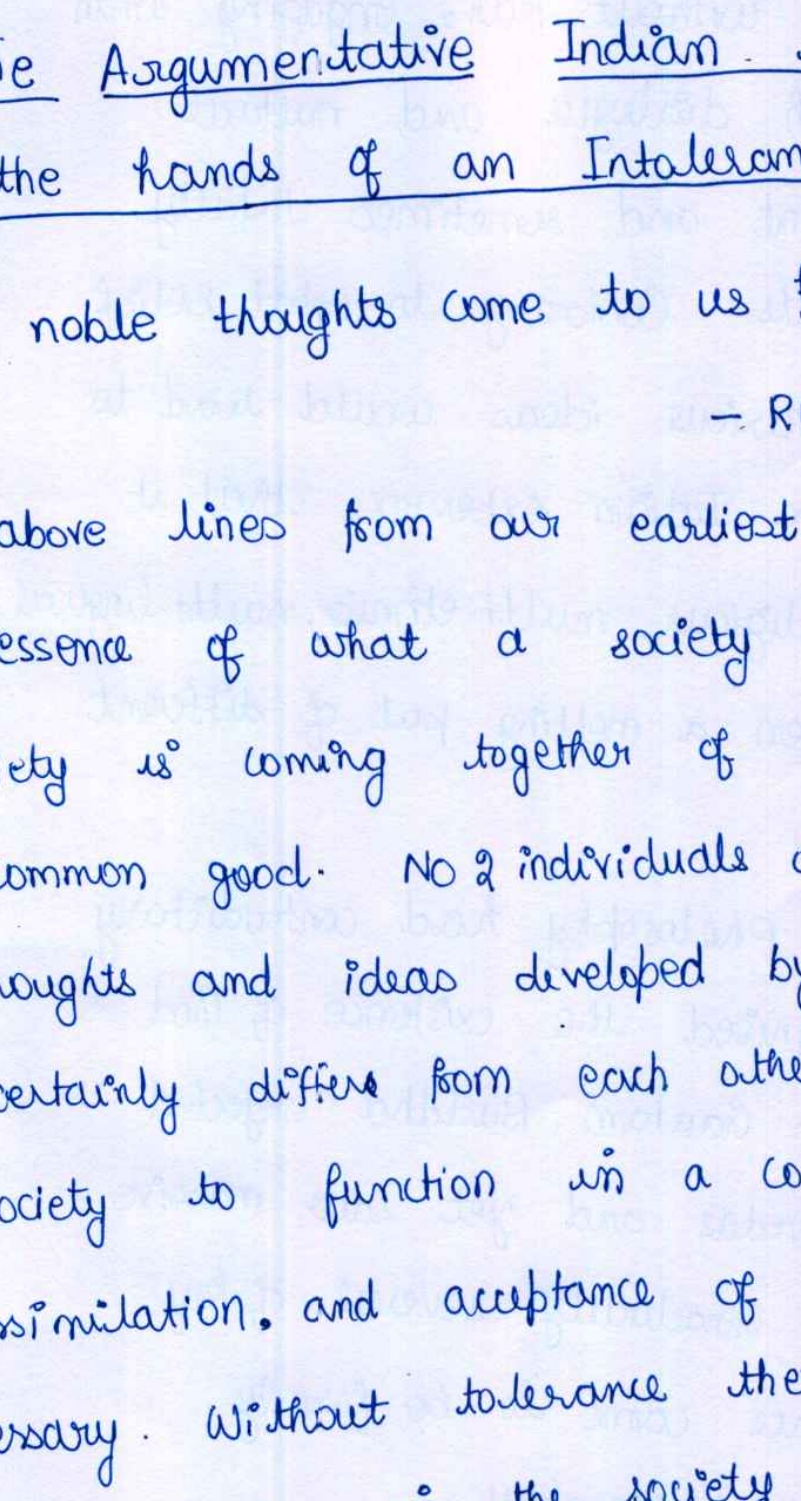 ie Argumentative Indian.
the hands of an Intoleran
noble thoughts come to us
- R
above lines from our earliest
essence of what a society
ety is coming together of
ommon good. No 2 individuals
oughts and ideas developed by
certainly differs from each othe
ociety to function in a co
ssimilation, and acceptance of
essary. Without tolerance the
the society